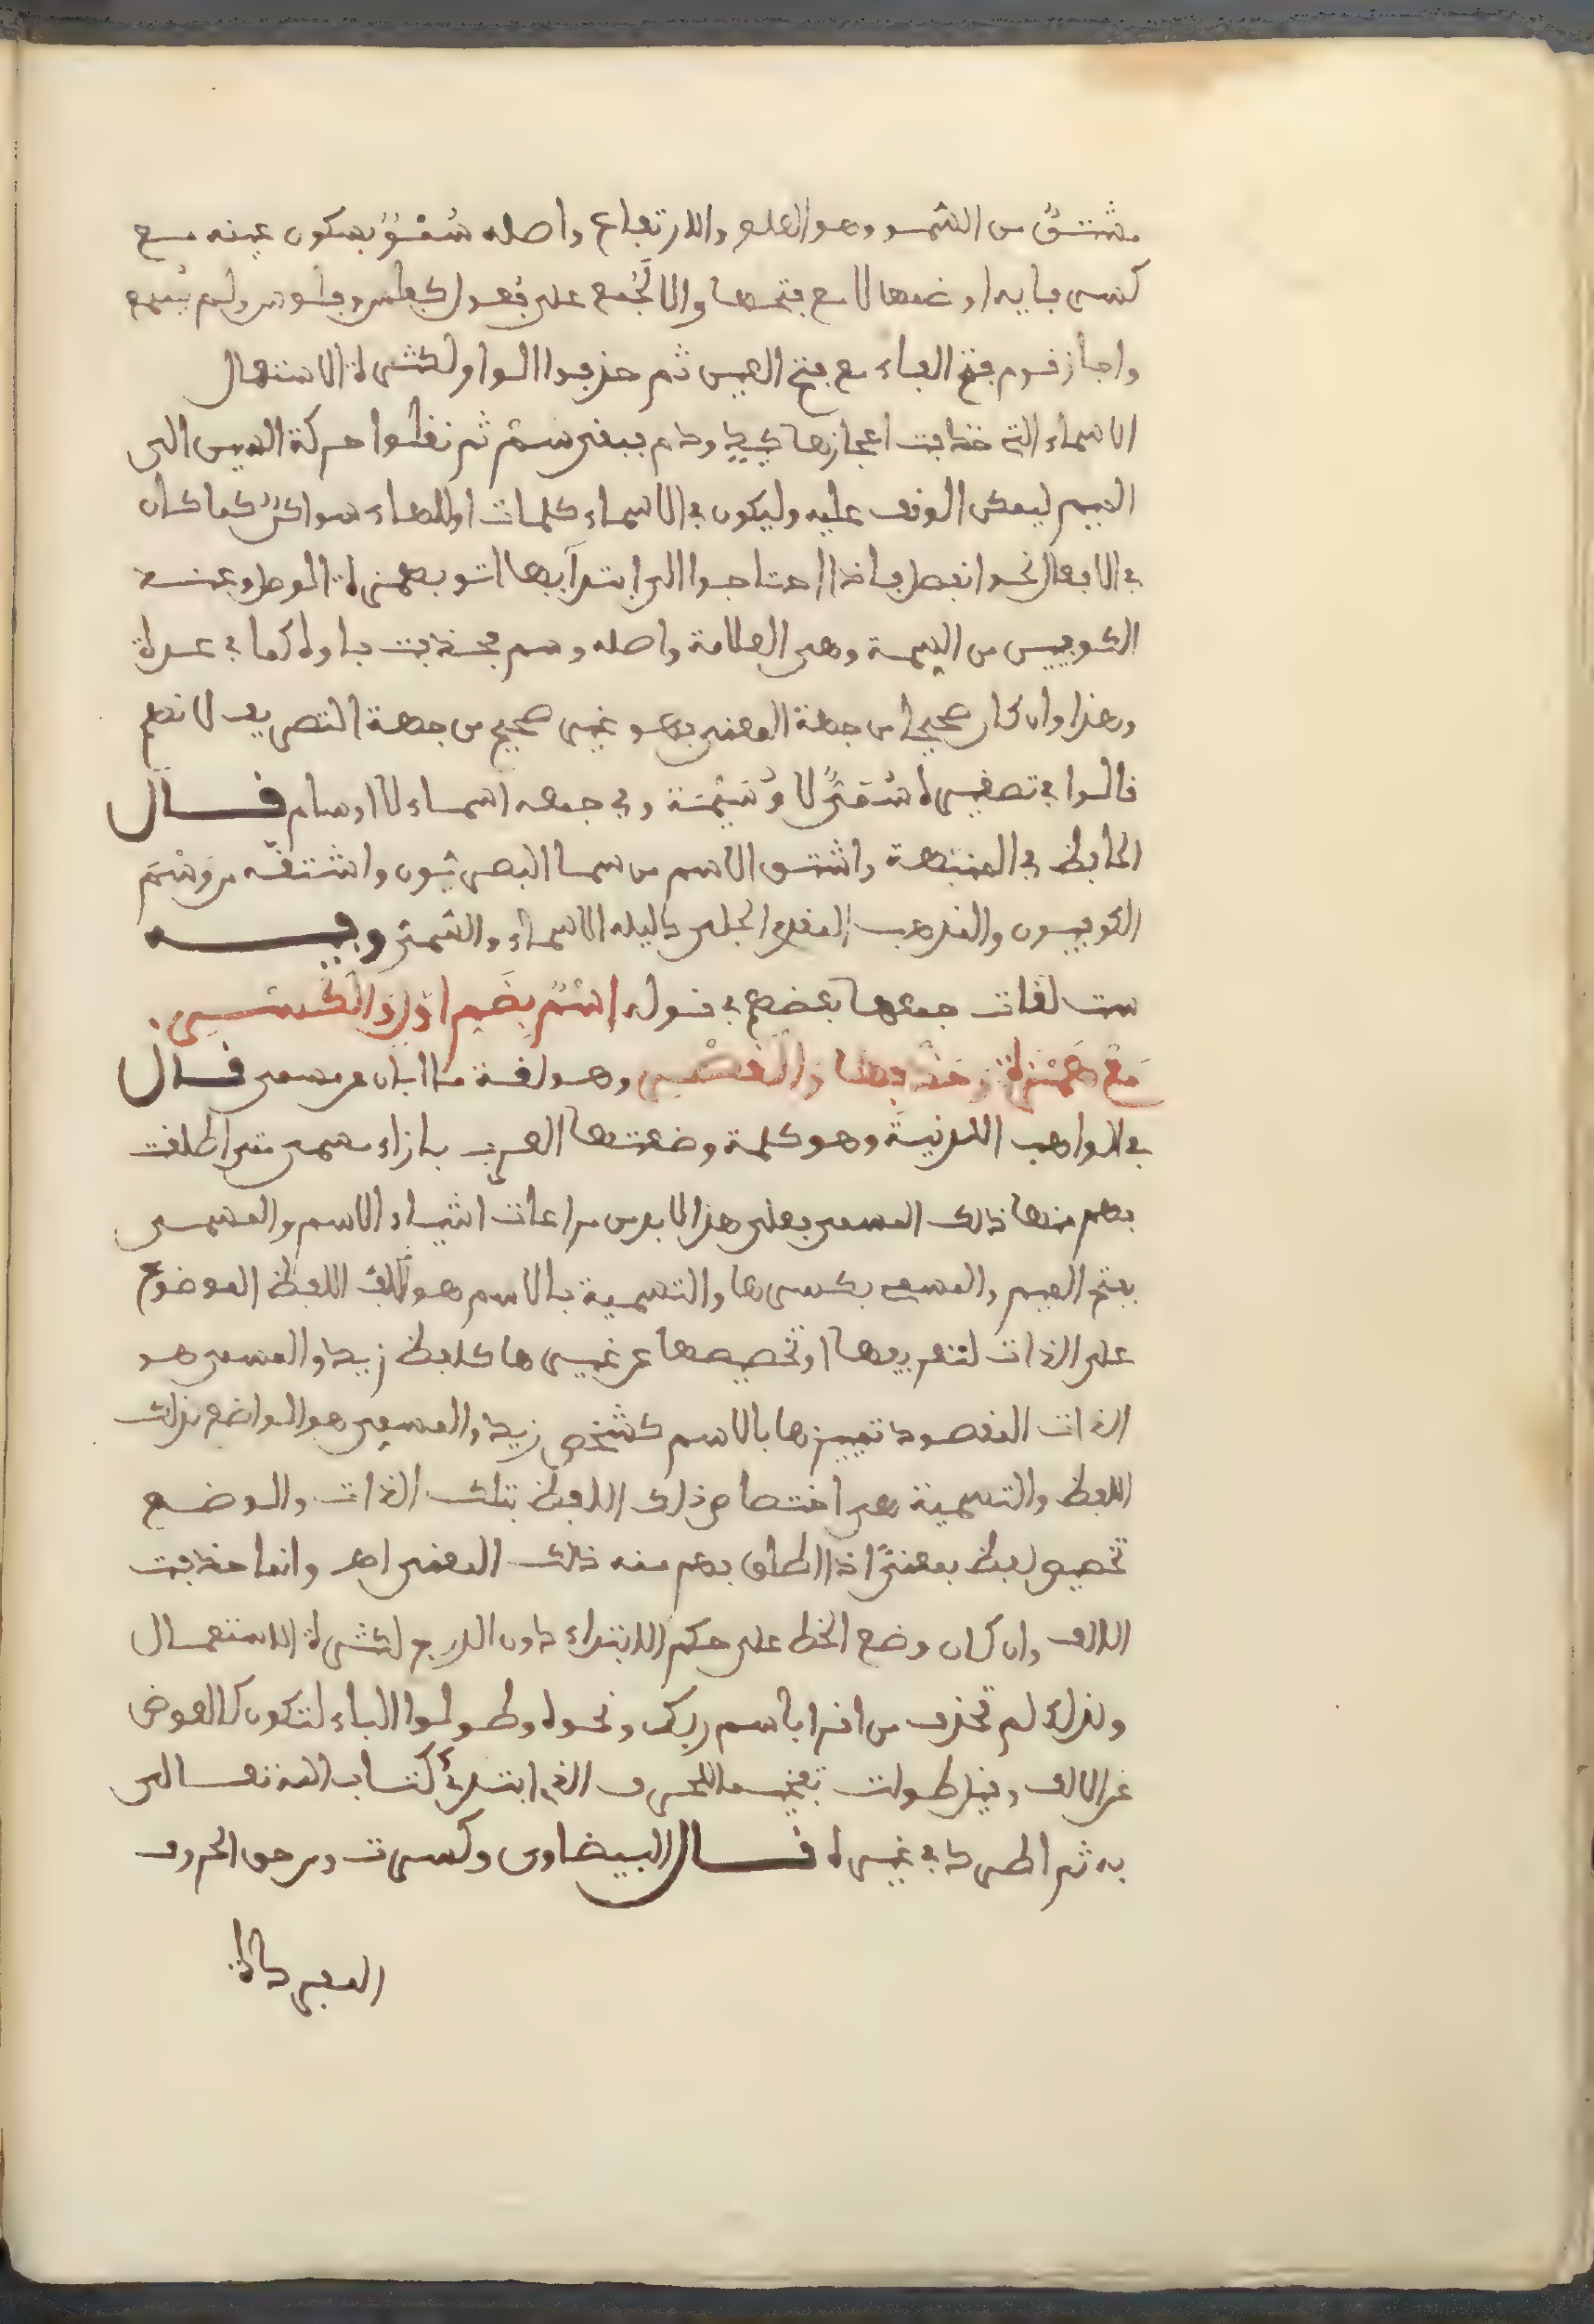 مشتق من السمو وهو العلو والارتفاع واصله سُمْوٌ بسكون عينه مع
كسر فايه او ضمها لا مع فتحها والا لجُمع على فُعول كفلس وفلوس ولم يُسمع
واجاز قوم فتح الفاء مع فتح العين ثم حذفوا الواو لكثرة الاستعمال
الاسماء التي حذفت اعجازها كيد ودم فبقي سمٌ ثم نقلوا حركة السين الى
الميم ليمكن الوقف عليه وليكون في الاسماء كلمات اوائلها سواكن كما كان
في الافعال نحو انفصل فاذا احتاجوا الى ابتدآ بها اتو بهمزة الوصل وعند
الكوفيين من السمة وهي العلامة واصله وسم فحذفت فاوه كما في عدة
وهذا وان كان صحيحا من جهة المعنى فهو غير صحيح من جهة التصريف لانهم
قالوا في تصغيره سُمَيٌّ لا وُسَيْمَة وفي جمعه اسماء لا اوسام قال
الحافظ في المنبهة واشتق الاسم من سما البصريون واشتقه من وَسْمَ
الكوفيون والمذهب المقدم الجلي دليله الاسماء والسُّمَيّ وفيه
ست لغات جمعها بعضهم في قوله إسْمٌ بِضَمِّ اوّلٍ والكسر
مَعْ هَمْزَةٍ وحَذْفِها والقَصْرِ وهو لغة ما ابان عن مسمى قال
في المواهب اللدنيَّة وهو كلمة وضعتها العرب بازاء مسمى متى اطلقت
فهم منها ذلك المسمى فعلى هذا لا بد من مراعات اشياء الاسم والمسمى
بفتح الميم والمسمي بكسرها والتسمية فالاسم هو اللفظ الموضوع
على الذات لتعريفها او تخصيصها عن غيرها كلفظ زيد والمسمى هو
الذات المقصود تمييزها بالاسم كشخص زيد والمسمي هو الواضع لذلك
اللفظ والتسمية هي اختصاص ذلك اللفظ بتلك الذات والوضع
تخصيص لفظ بمعنىً اذا اطلق فهم منه ذلك المعنى اهـ وانما حذفت
الالف وان كان وضع الخط على حكم الابتداء دون الدرج لكثرة الاستعمال
ولذلك لم تحذف من اقرا باسم ربك ونحوه وطولوا الباء لتكون كالعوض
عن الالف وقيل طولت تفخيما للحرف الذي ابتدئ كتاب الله تعالى
به ثم اطرد في غيره قال البيضاوي وكسرت ومن حق الحروف
المفردة